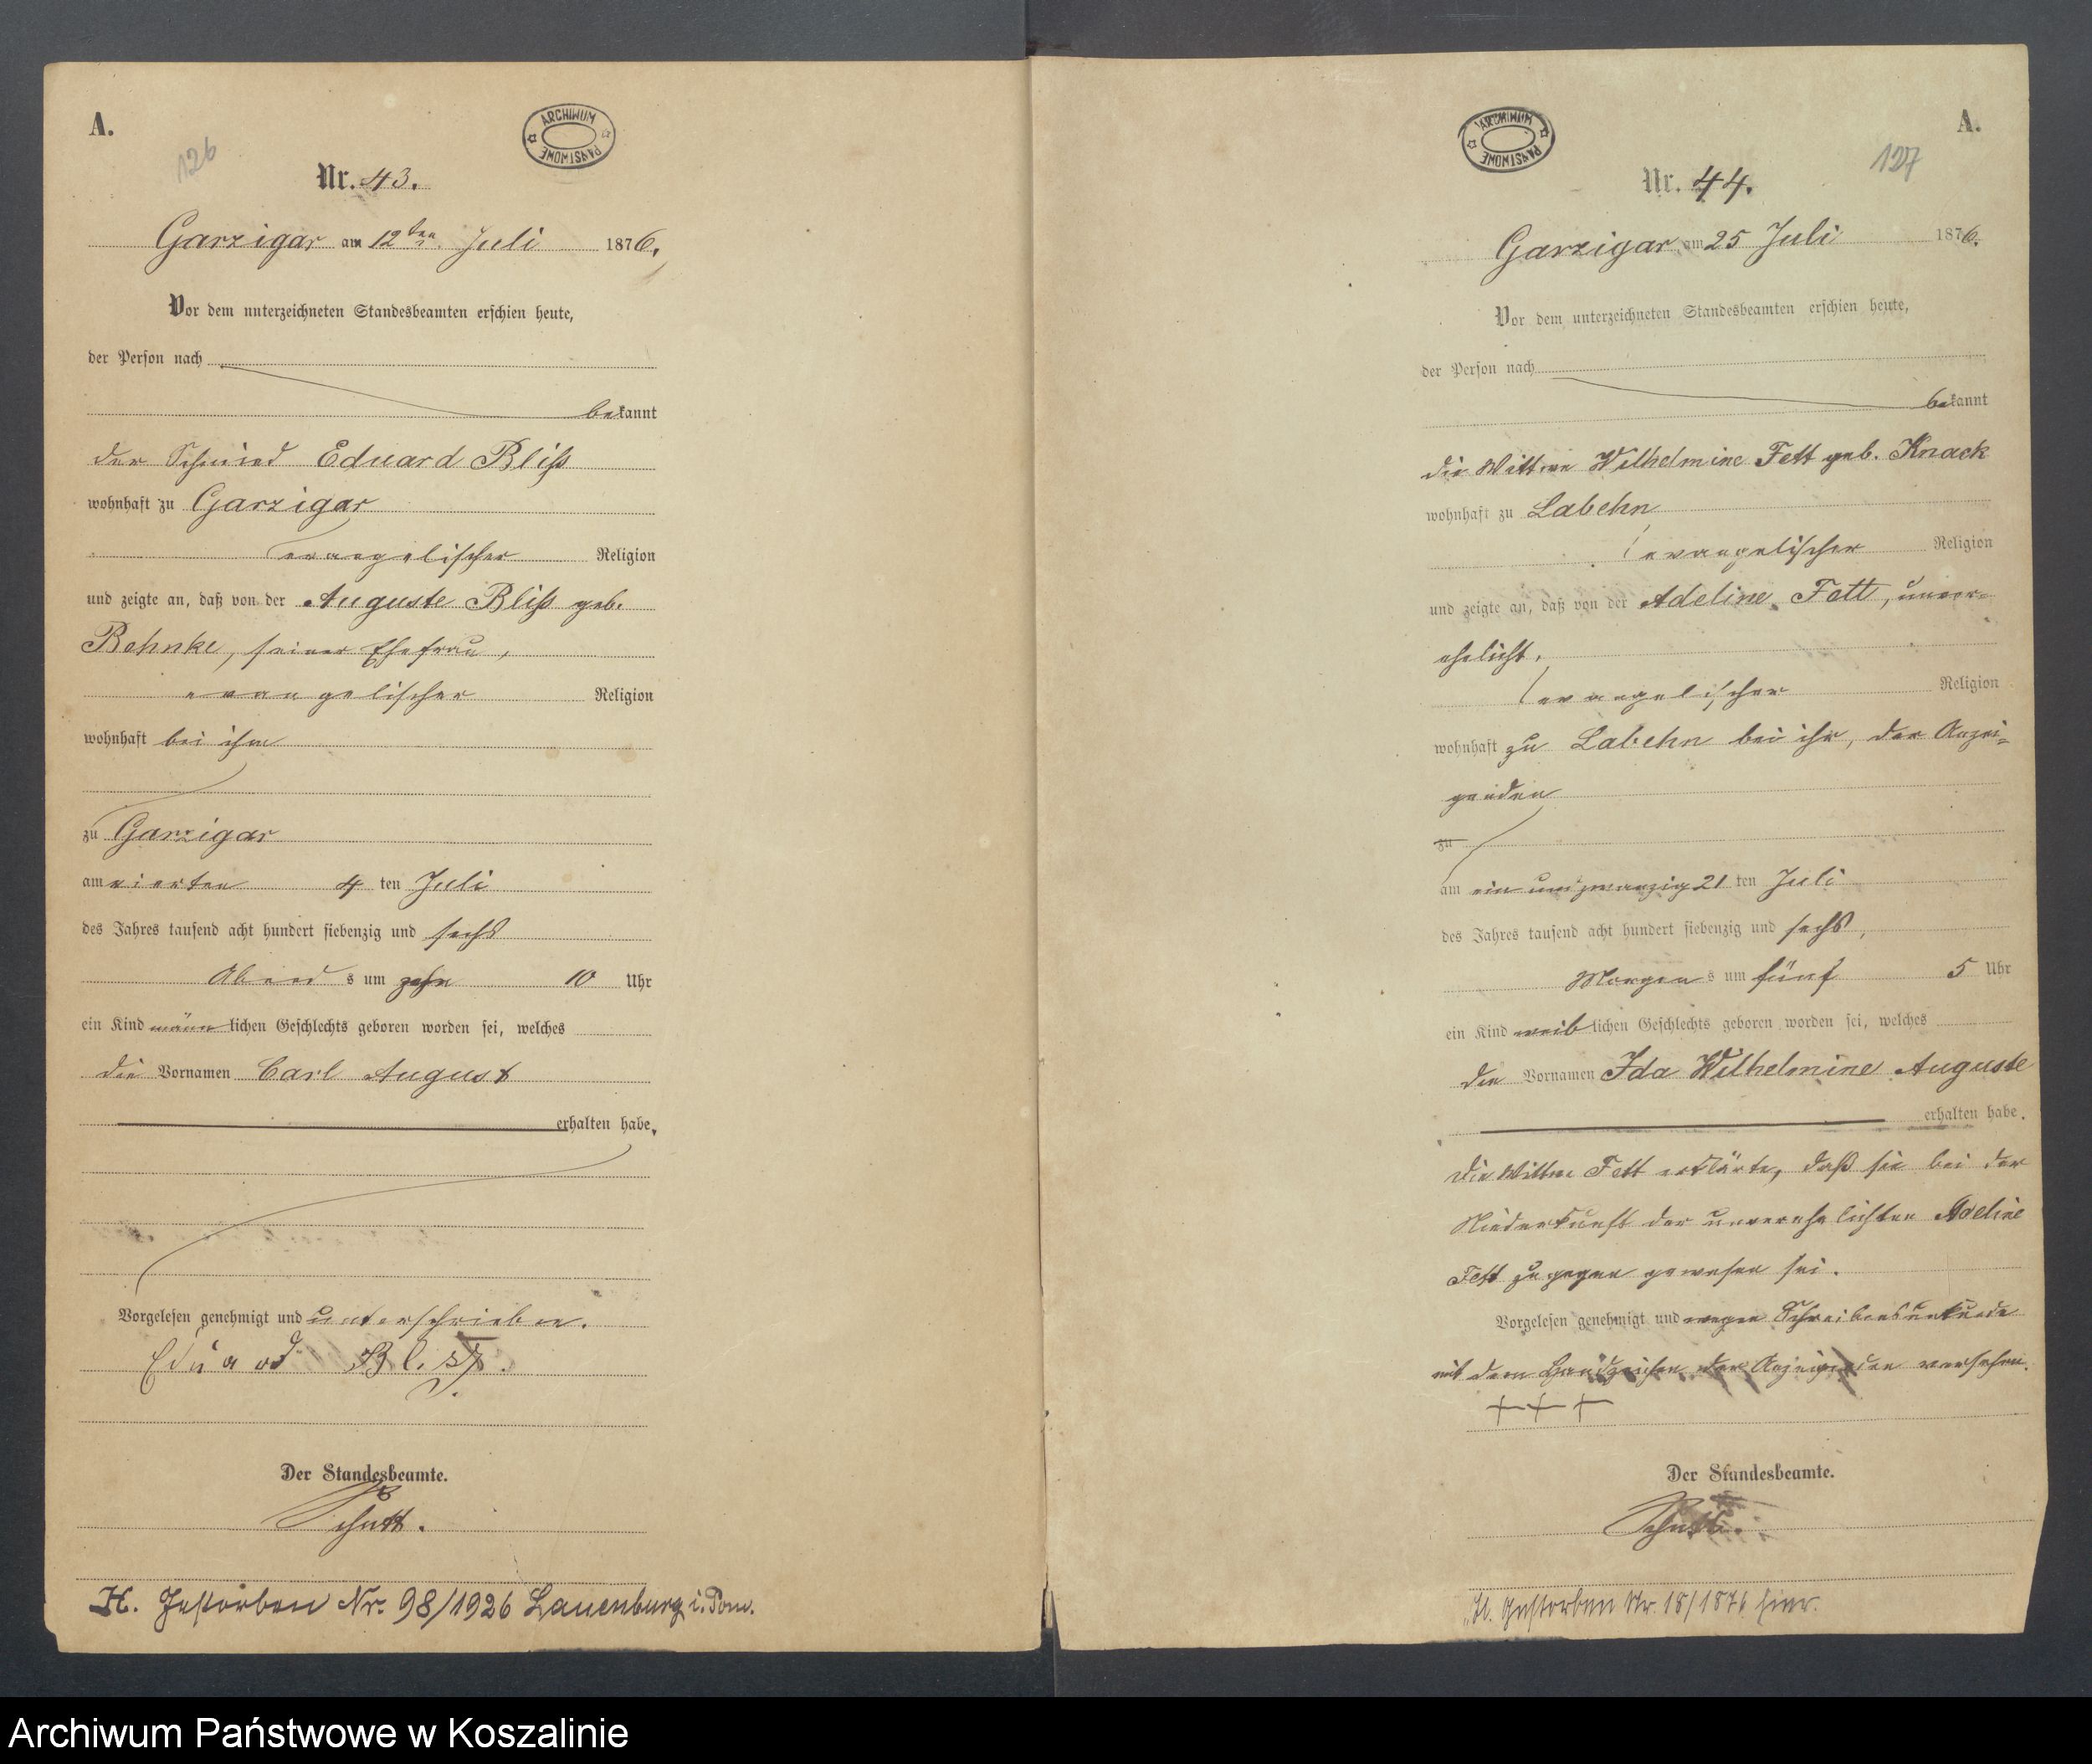 A.
126
ARCHIWUM PAŃSTWOWE
Nr. 43.
Garzigar am 12ten Juli 1876.
Vor dem unterzeichneten Standesbeamten erschien heute,
der Person nach
bekannt
der Schmied Eduard Bliß
wohnhaft zu Garzigar
evangelischer Religion
und zeigte an, daß von der Auguste Bliß geb.
Behnke, seiner Ehefrau,
evangelischer Religion
wohnhaft bei ihm
zu Garzigar
am vierten 4 ten Juli
des Jahres tausend acht hundert siebenzig und sechs
Abend s um zehn 10 Uhr
ein Kind männlichen Geschlechts geboren worden sei, welches
die Vornamen Carl August
erhalten habe.
Vorgelesen genehmigt und unterschrieben.
Eduard Bliß.
Der Standesbeamte.
Schutt.
H. Gestorben Nr. 98/1926 Lauenburg i. Pom.
A.
127
ARCHIWUM PAŃSTWOWE
Nr. 44.
Garzigar am 25 Juli 1876.
Vor dem unterzeichneten Standesbeamten erschien heute,
der Person nach
bekannt
die Wittwe Wilhelmine Fett geb. Knack
wohnhaft zu Labehn
evangelischer Religion
und zeigte an, daß von der Adeline Fett, unver=
ehelicht,
evangelischer Religion
wohnhaft zu Labehn bei ihr, der Anzei=
genden
zu
am ein und zwanzig 21 ten Juli
des Jahres tausend acht hundert siebenzig und sechs,
Morgen s um fünf 5 Uhr
ein Kind weiblichen Geschlechts geboren worden sei, welches
die Vornamen Ida Wilhelmine Auguste
erhalten habe.
Die Wittwe Fett erklärte, daß sie bei der
Niederkunft der unverehelichten Adeline
Fett zugegen gewesen sei.
Vorgelesen genehmigt und wegen Schreibensunkunde
mit dem Handzeichen der Anzeigenden versehen.
+++
Der Standesbeamte.
Schutt.
H. Gestorben Nr. 18/1876 hier.
Archiwum Państwowe w Koszalinie